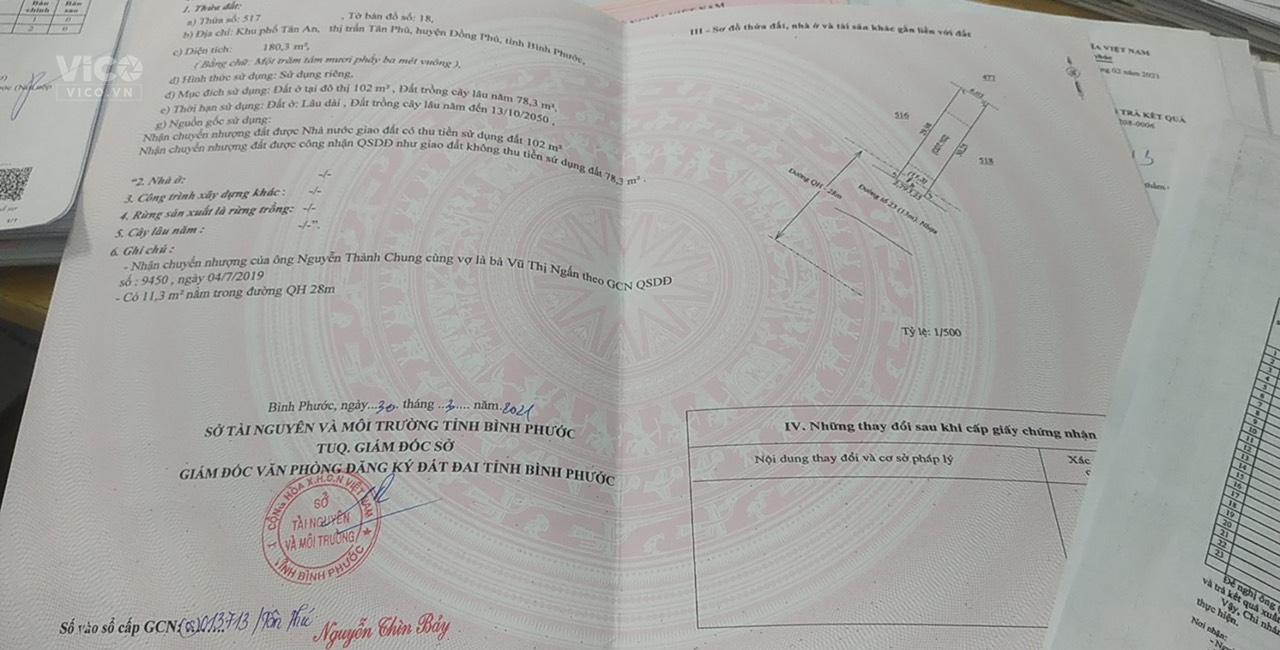 Bản chính
Bản sao
1 0
2 0
ViCO
VICO.VN
1. Thửa đất:
a) Thửa số: 517 , Tờ bản đồ số: 18,
b) Địa chỉ: Khu phố Tân An, thị trấn Tân Phú, huyện Đồng Phú, tỉnh Bình Phước,
c) Diện tích: 180,3 m²,
( Bằng chữ: Một trăm tám mươi phẩy ba mét vuông ),
d) Hình thức sử dụng: Sử dụng riêng,
đ) Mục đích sử dụng: Đất ở tại đô thị 102 m² , Đất trồng cây lâu năm 78,3 m²,
e) Thời hạn sử dụng: Đất ở: Lâu dài , Đất trồng cây lâu năm đến 13/10/2050 ,
g) Nguồn gốc sử dụng:
Nhận chuyển nhượng đất được Nhà nước giao đất có thu tiền sử dụng đất 102 m²
Nhận chuyển nhượng đất được công nhận QSDĐ như giao đất không thu tiền sử dụng đất 78,3 m² .
"2. Nhà ở: -/-
3. Công trình xây dựng khác : -/-
4. Rừng sản xuất là rừng trồng: -/-
5. Cây lâu năm : -/-".
6. Ghi chú :
- Nhận chuyển nhượng của ông Nguyễn Thành Chung cùng vợ là bà Vũ Thị Ngấn theo GCN QSDĐ
số : 9450 , ngày 04/7/2019
- Có 11,3 m² nằm trong đường QH 28m
Bình Phước, ngày...30. tháng ..3.... năm.2021
SỞ TÀI NGUYÊN VÀ MÔI TRƯỜNG TỈNH BÌNH PHƯỚC
TUQ. GIÁM ĐỐC SỞ
GIÁM ĐỐC VĂN PHÒNG ĐĂNG KÝ ĐẤT ĐAI TỈNH BÌNH PHƯỚC
CỘNG HÒA X.H.C.N VIỆT NAM
SỞ
TÀI NGUYÊN
VÀ MÔI TRƯỜNG
TỈNH BÌNH PHƯỚC
Số vào sổ cấp GCN:(CS)013713/Tân Phú
Nguyễn Thìn Bảy
III - Sơ đồ thửa đất, nhà ở và tài sản khác gắn liền với đất
477
516
518
Đường QH - 28m
Đường số 23 (13m), Nhựa
Tỷ lệ: 1/500
IV. Những thay đổi sau khi cấp giấy chứng nhận
Nội dung thay đổi và cơ sở pháp lý
Xác
VIỆT NAM
02 năm 2021
TRẢ KẾT QUẢ
208-0006
1
2
3
4
5
6
7
8
9
10
11
12
13
14
15
16
17
18
19
20
21
22
23
Đề nghị ông
và trả kết quả xuất
Vậy, Chi nhánh
thực hiện.
Nơi nhận: